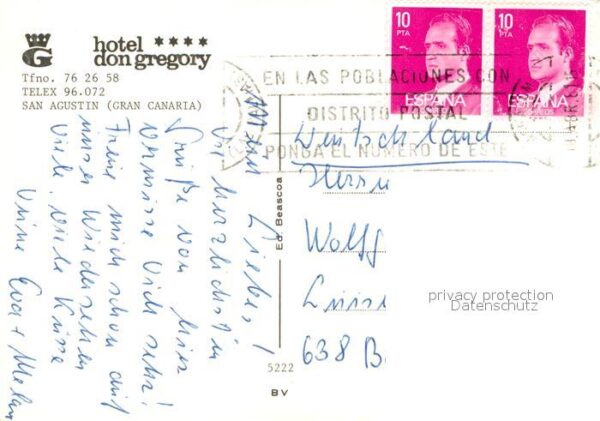 hotel ★★★★
don gregory
G
Tfno. 76 26 58
TELEX 96.072
SAN AGUSTIN (GRAN CANARIA)
10
PTA
ESPAÑA
10
PTA
ESPAÑA
EN LAS POBLACIONES CON
DISTRITO POSTAL
PONGA EL NUMERO DE ESTE
Liebes!
Die herzlichsten
Grüße von hier
vermisse Dich sehr!
Freue mich schon auf
unser Wiedersehen
Viele, viele Küsse
Deine Eva +
Deutschland
Herrn
Wolfg
Luise
638 B
privacy protection
Datenschutz
Ed. Beascoa
5222
BV